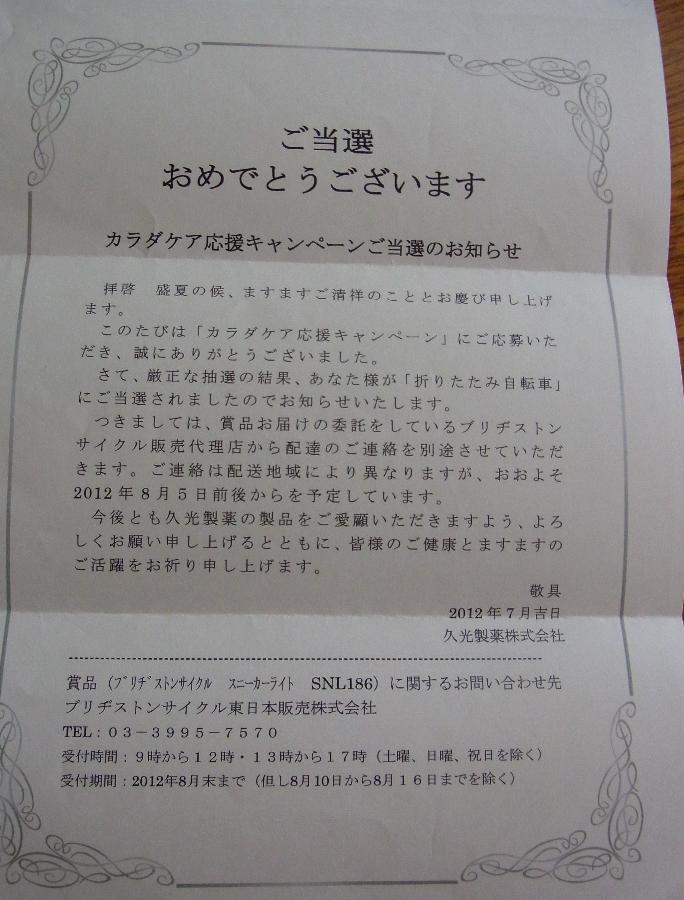 ご当選
おめでとうございます
カラダケア応援キャンペーンご当選のお知らせ
拝啓　盛夏の候、ますますご清祥のこととお慶び申し上げ
ます。
このたびは「カラダケア応援キャンペーン」にご応募いた
だき、誠にありがとうございました。
さて、厳正な抽選の結果、あなた様が「折りたたみ自転車」
にご当選されましたのでお知らせいたします。
つきましては、賞品お届けの委託をしているブリヂストン
サイクル販売代理店から配達のご連絡を別途させていただ
きます。ご連絡は配送地域により異なりますが、おおよそ
2012年8月5日前後からを予定しています。
今後とも久光製薬の製品をご愛顧いただきますよう、よろ
しくお願い申し上げるとともに、皆様のご健康とますますの
ご活躍をお祈り申し上げます。
敬具
2012年7月吉日
久光製薬株式会社
賞品（ﾌﾞﾘﾁﾞｽﾄﾝｻｲｸﾙ　ｽﾆｰｶｰﾗｲﾄ　SNL186）に関するお問い合わせ先
ブリヂストンサイクル東日本販売株式会社
TEL：０３－３９９５－７５７０
受付時間：９時から１２時・１３時から１７時（土曜、日曜、祝日を除く）
受付期間：2012年8月末まで（但し8月10日から8月１６日までを除く）